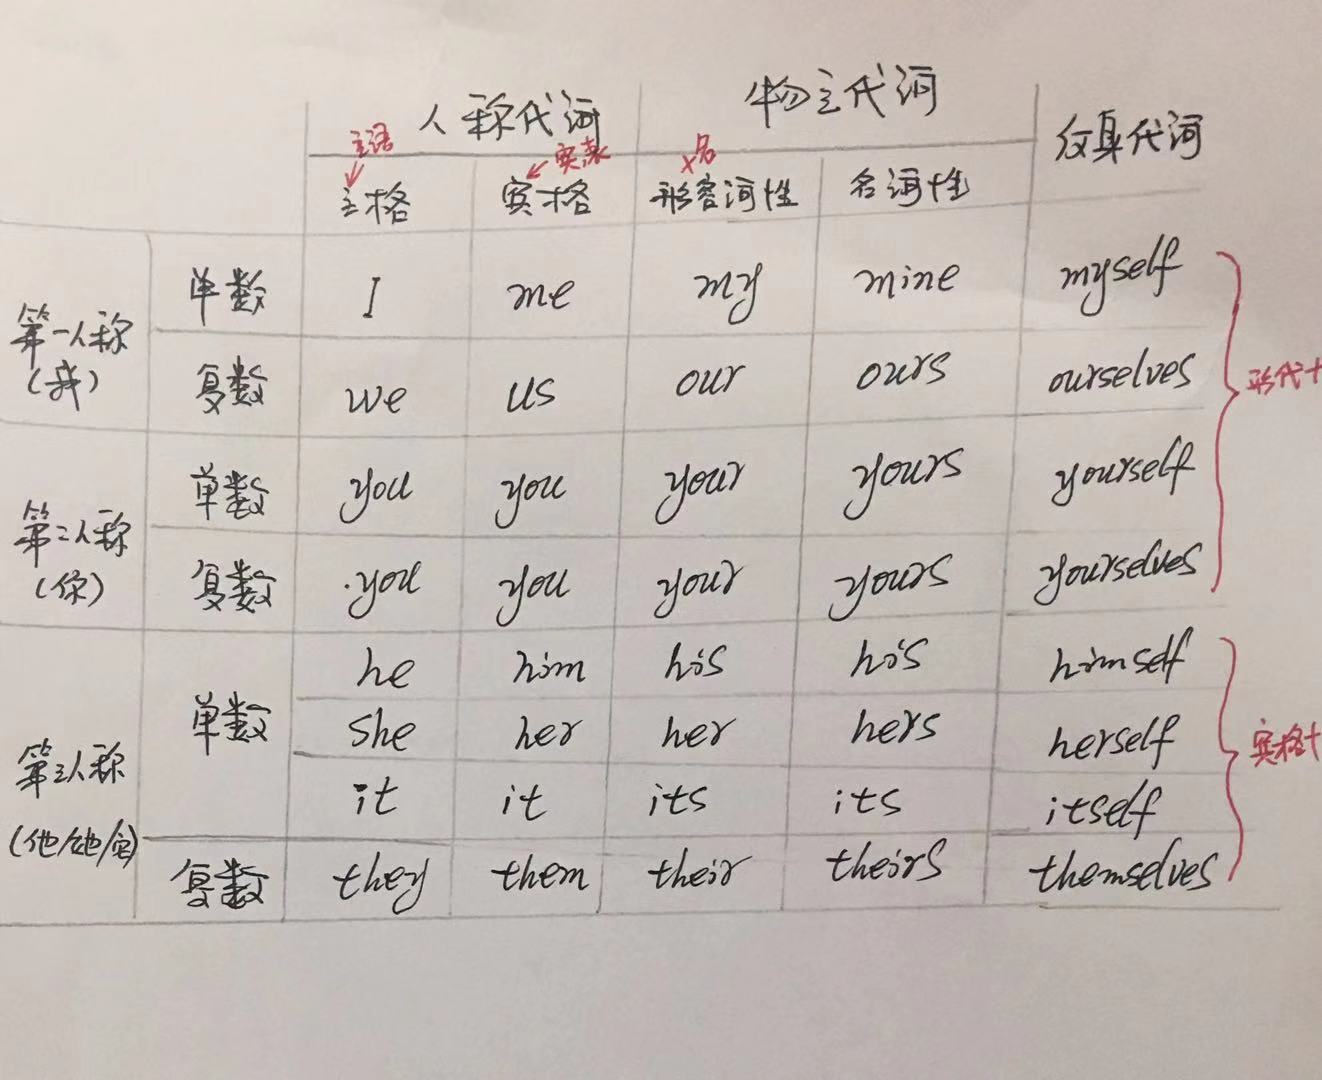 人称代词 物主代词 反身代词
主语 宾表 x名
主格 宾格 形容词性 名词性
第一人称
(我)
单数 I me my mine myself
复数 we us our ours ourselves
形代+
第二人称
(你)
单数 you you your yours yourself
复数 you you your yours yourselves
第三人称
(他/她/它)
单数 he him his his himself
she her her hers herself
it it its its itself
宾格+
复数 they them their theirs themselves